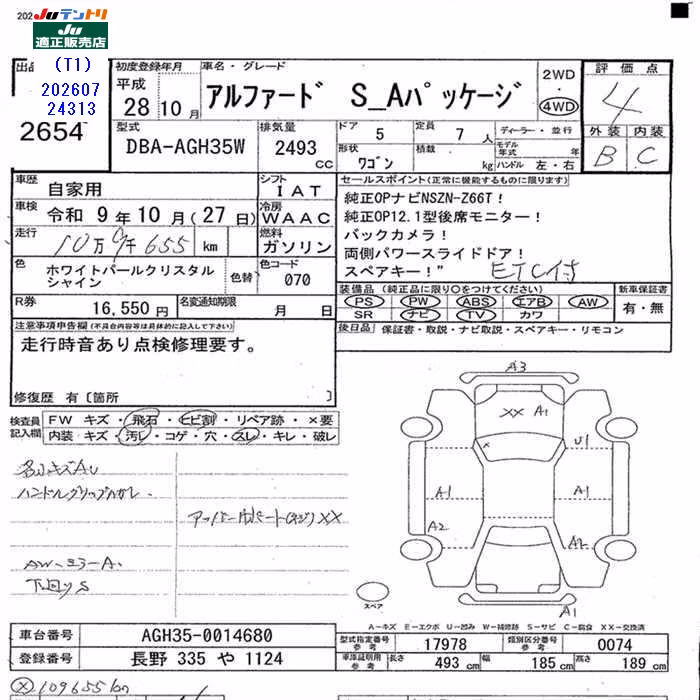 202
JUテントリ
適正販売店
出品
(T1)
202607
24313
2654
初度登録年月
平成
28年10月
車名・グレード
アルファード S_Aパッケージ
2WD
4WD
評価点
4
外装 内装
B C
型式
DBA-AGH35W
排気量
2493
cc
ドア 5
定員 7人
ディーラー・並行
形状 ワゴン
積載 kg
モデル年式 年
ハンドル 左・右
車歴
自家用
シフト
IAT
車検
令和 9年10月(27日)
冷房
WAAC
走行
10万9千655 km
燃料
ガソリン
色
ホワイトパールクリスタル
シャイン
色替
色コード
070
R券
16,550円
名変通知期限
月 日
セールスポイント(正常に機能するものに限ります)
純正OPナビNSZN-Z66T!
純正OP12.1型後席モニター!
バックカメラ!
両側パワースライドドア!
スペアキー!"
ETC付
装備品 (純正品に限り○をつけてください)
PS PW ABS エアB AW
SR ナビ TV カワ
新車保証書
有・無
後日品 保証書・取説・ナビ取説・スペアキー・リモコン
注意事項申告欄(不具合内容等は具体的に記入して下さい)
走行時音あり点検修理要す。
修復歴 有〔箇所 〕
検査員
記入欄
FW キズ・飛石・ヒビ割・リペア跡・×要
内装 キズ・汚レ・コゲ・穴・スレ・キレ・破レ
各小キズAU
ハンドルグリップハガレ
XX
AW-ミラーA
下回りS
A3
XX A1
×
U1
A1
A1
A2
A2
A1
スペア
A-キズ E-エクボ U-凹み W-補修跡 S-サビ C-腐食 XX-交換済
車台番号
AGH35-0014680
登録番号
長野 335 や 1124
型式指定番号
参考
17978
類別区分番号
参考
0074
車庫証明用
参考
長さ 493 cm
幅 185 cm
高さ 189 cm
Ⓧ109655km